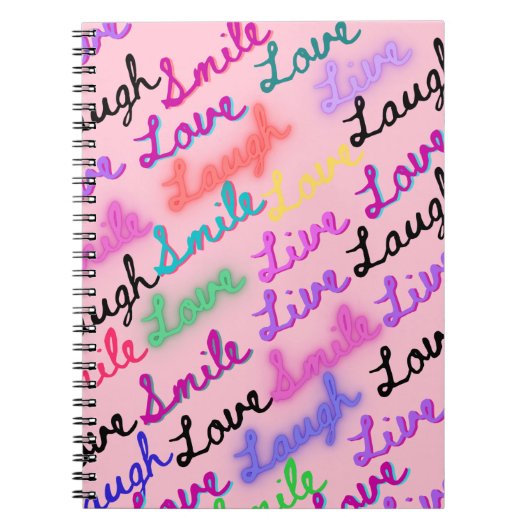 Smile Love
Laugh Live
Love Laugh
Love Laugh
Love Love
Smile Smile Live
Laugh Love Live Laugh
Smile Smile Live
Love Smile Love
Laugh Love Laugh Live
Love Smile Live